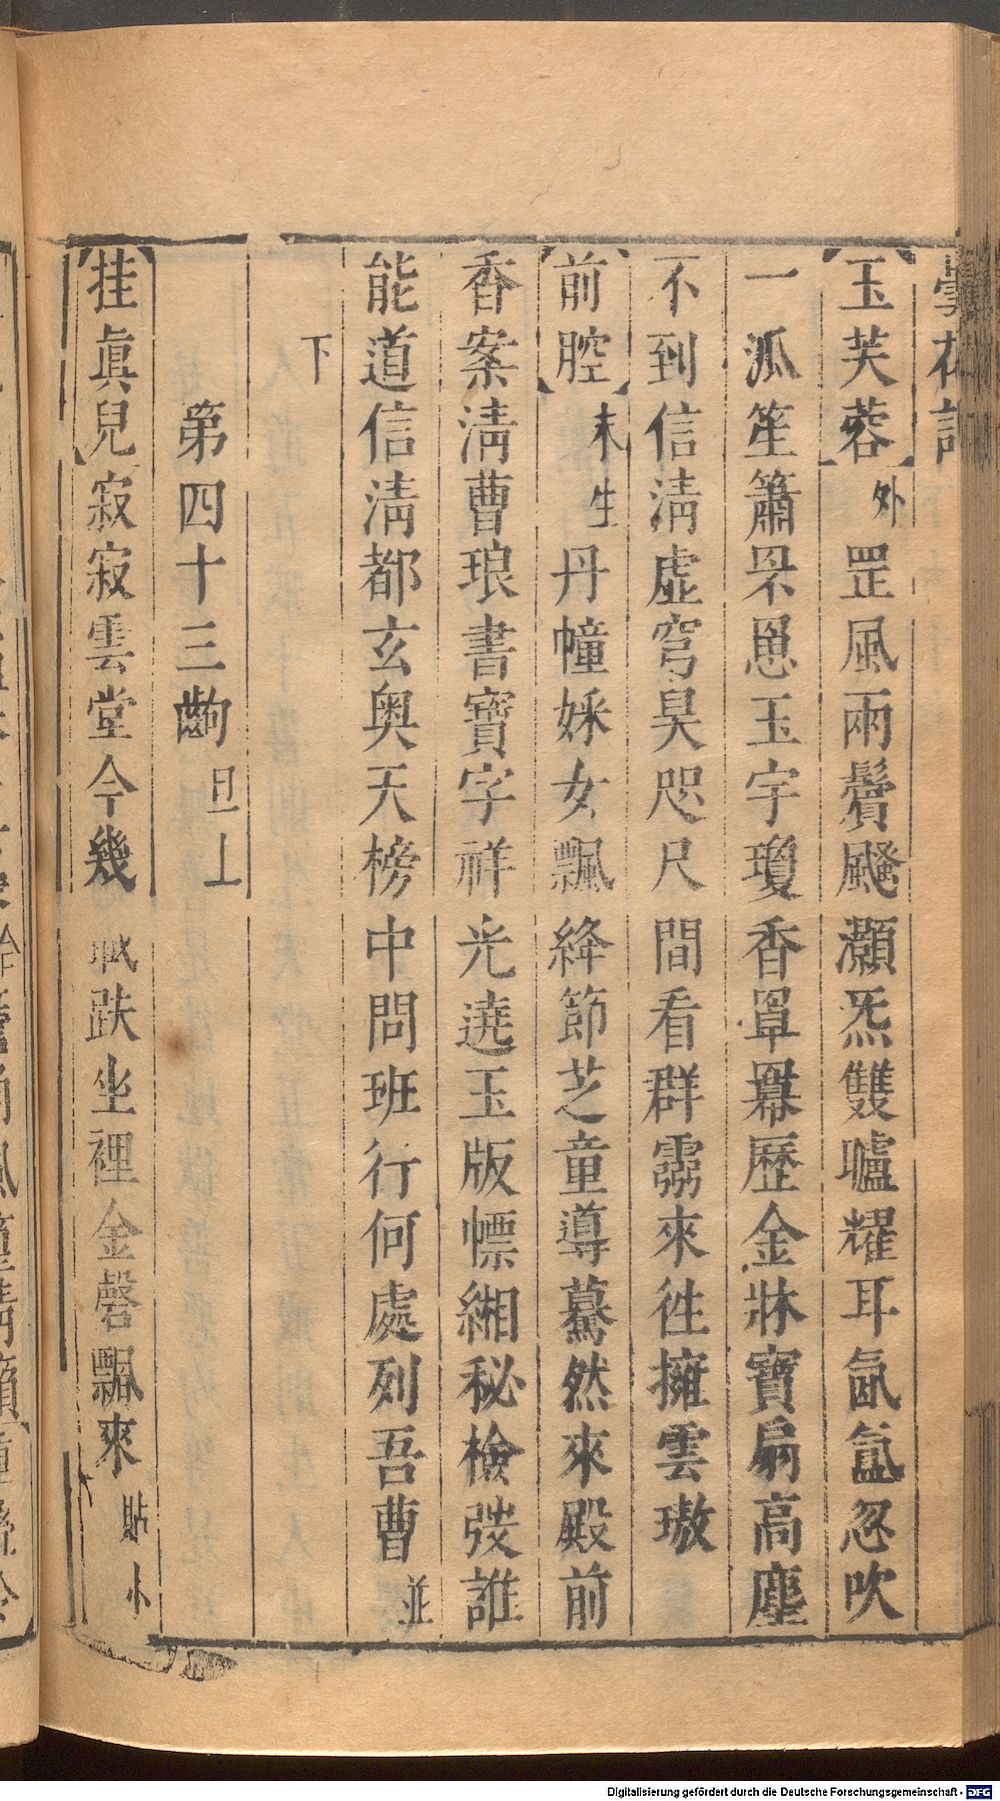 曇花記
【玉芙蓉】外罡風雨鬢飋灝炁雙壚耀耳氤氳忽吹
一派笙簫罘罳玉宇瓊香罩羃歷金牀寶扇高塵
不到信淸虛穹昊咫尺間看群靈來徃擁雲璈
【前腔】末生丹幢婇女飄絳節芝童導驀然來殿前
香案淸曹琅書寶字祥光遶玉版幖緗秘檢弢誰
能道信淸都玄奥天榜中問班行何處列吾曹並
下
第四十三齣旦上
【挂眞兒】寂寂雲堂今幾跌坐裡金磬飄來貼小
Digitalisierung gefördert durch die Deutsche Forschungsgemeinschaft - DFG